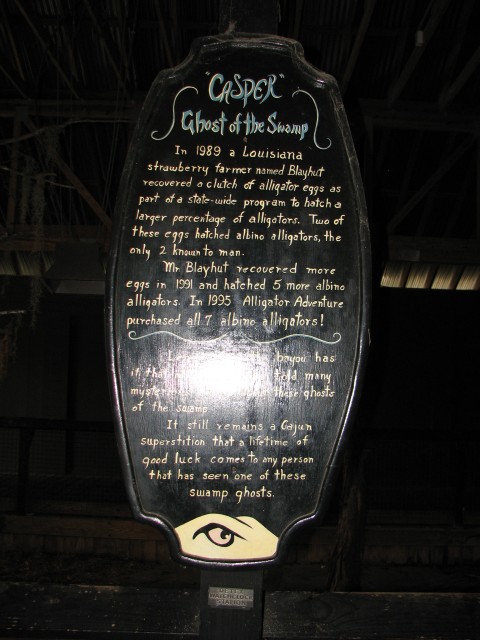 "CASPER"
Ghost of the Swamp
In 1989 a Louisiana
strawberry farmer named Blayhut
recovered a clutch of alligator eggs as
part of a state-wide program to hatch a
larger percentage of alligators. Two of
these eggs hatched albino alligators, the
only 2 known to man.
Mr. Blayhut recovered more
eggs in 1991 and hatched 5 more albino
alligators. In 1995 Alligator Adventure
purchased all 7 albino alligators!
bayou has
it told many
these ghosts
of the swamp
It still remains a Cajun
superstition that a lifetime of
good luck comes to any person
that has seen one of these
swamp ghosts.
WATCHCLOCK
STATION